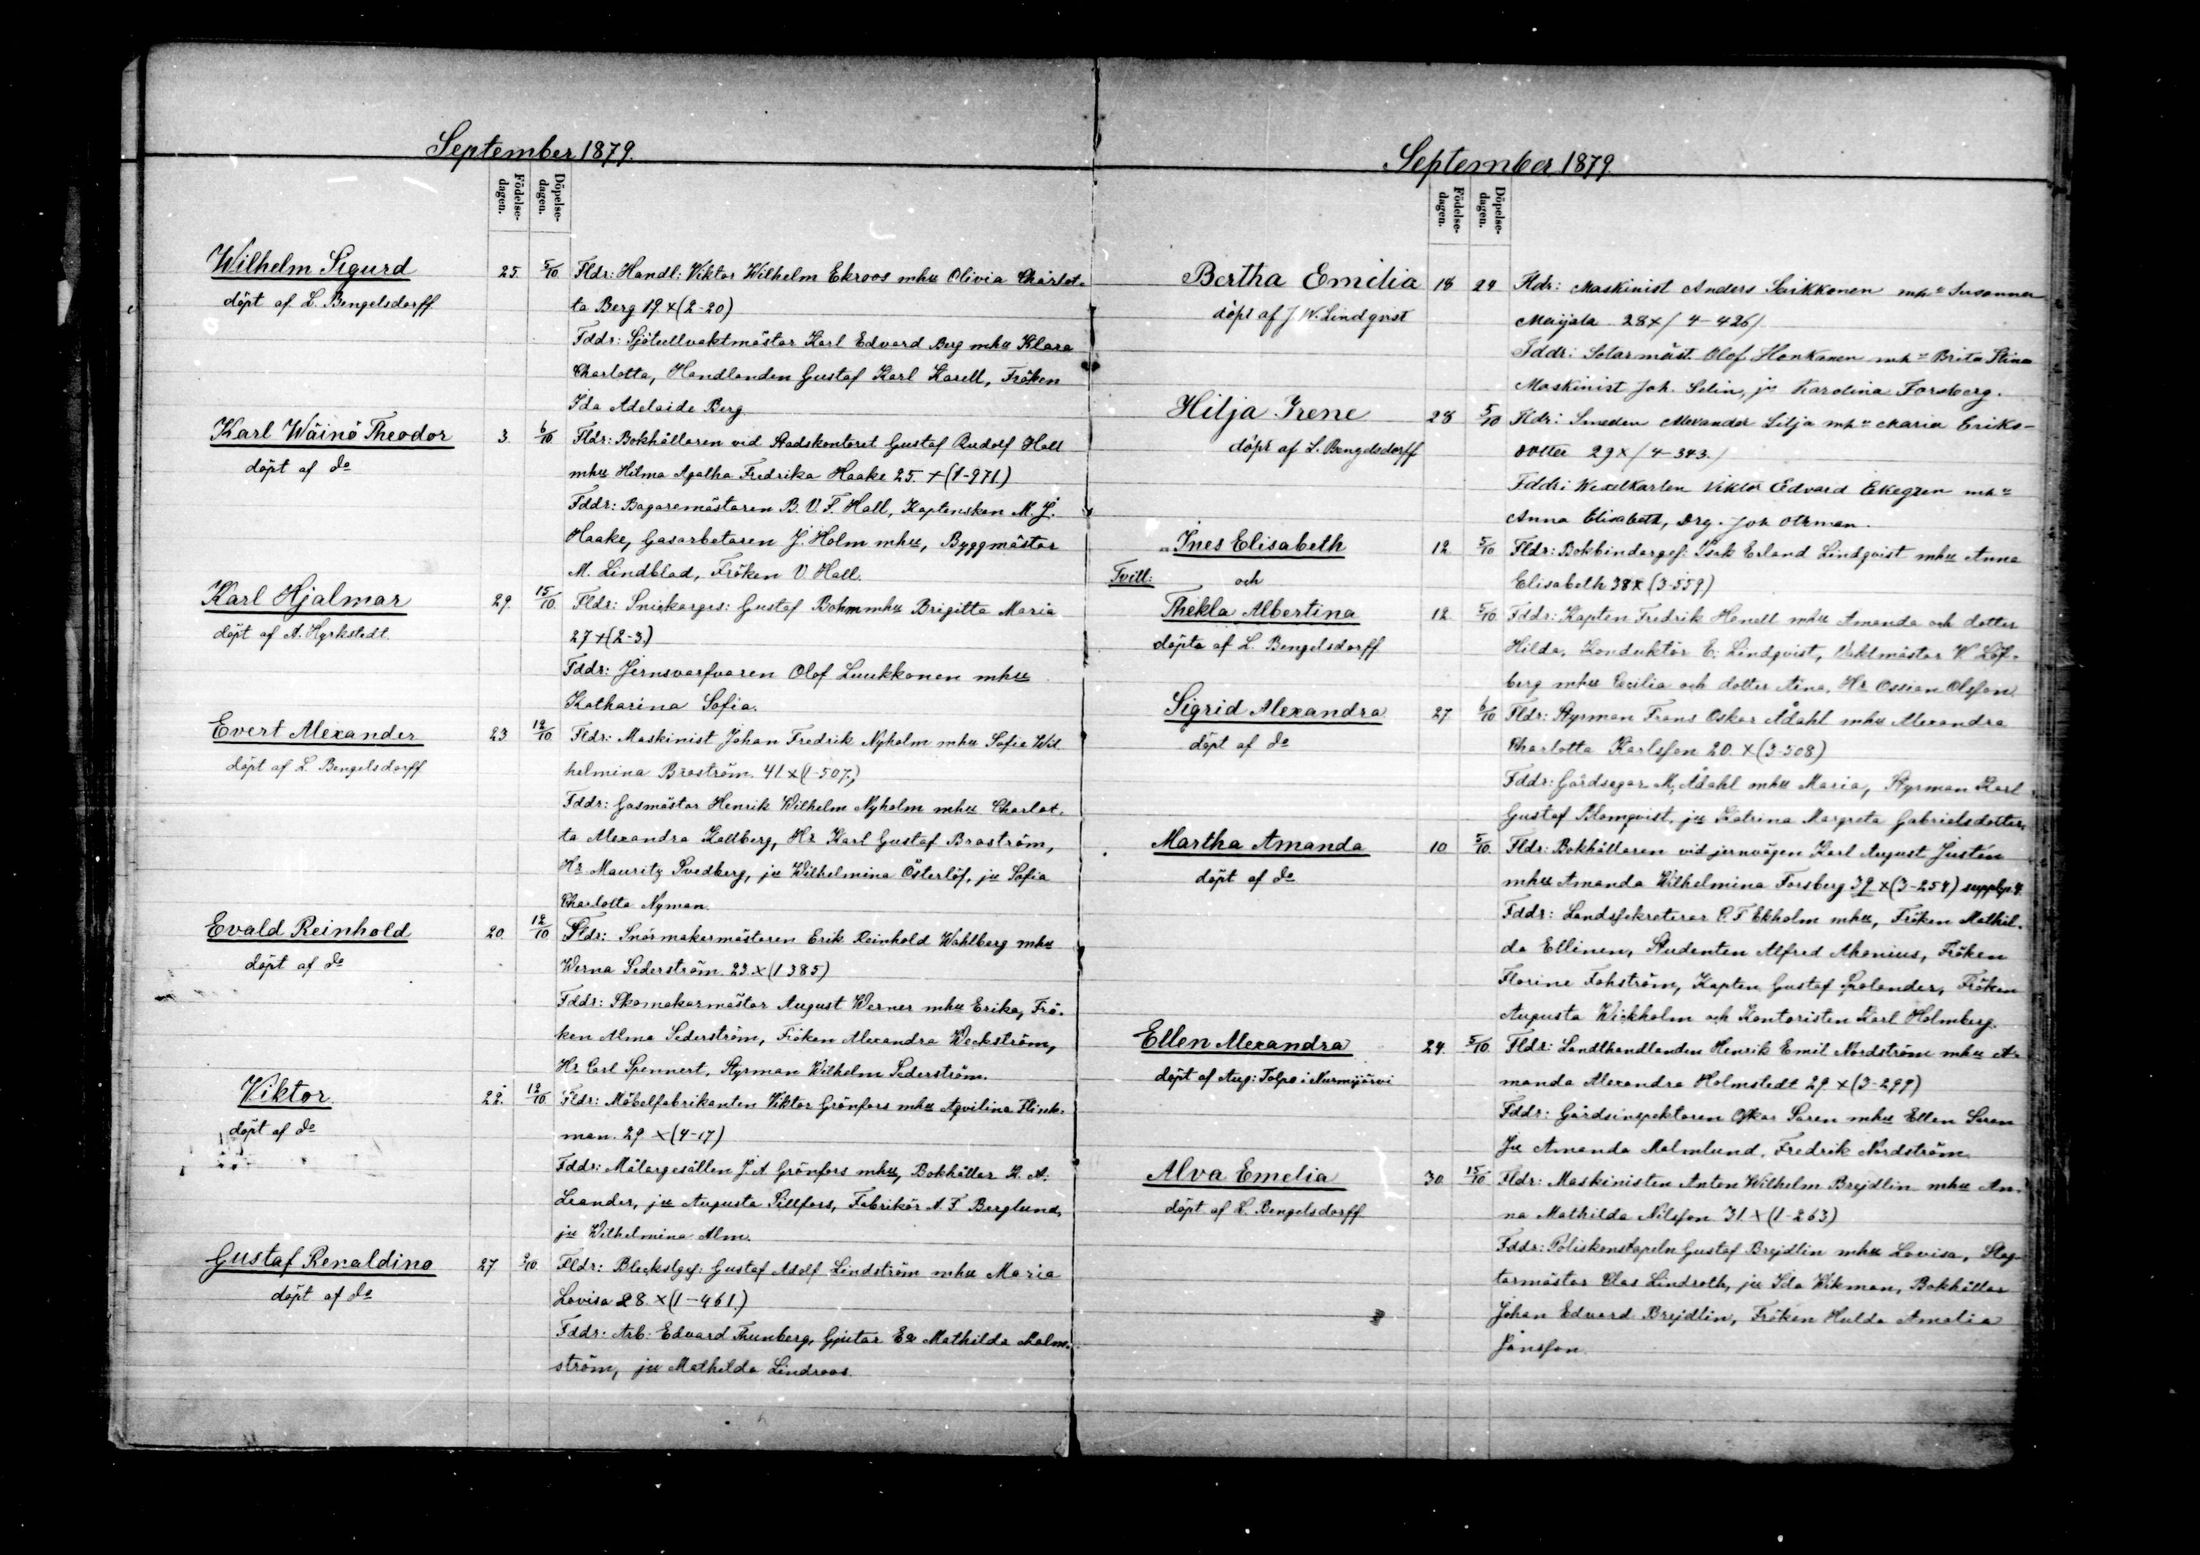 September 1879.
Födelse-
dagen.
Döpelse-
dagen.
Wilhelm Sigurd 25 5/10 Fldr: Handl: Viktor Wilhelm Ekroos mhu Olivia Charlot-
döpt af L. Bengelsdorff ta Berg 19 x (2-20)
Fddr: Sjötullvaktmästar Karl Edvard Berg mhu Klara
Charlotta, Handlanden Gustaf Karl Karell, Fröken
Ida Adelaide Berg.
Karl Wäinö Theodor 3. 6/10 Fldr: Bokhållaren vid Stadskontoret Gustaf Rudolf Hall
döpt af do mhu Hilma Agatha Fredrika Haake 25. + (1-971)
Fddr: Bagaremästaren B. V. F. Hall, Kaptenskan M. J.
Haake, Gasarbetaren J. Holm mhu, Byggmästar
M. Lindblad, Fröken V. Hall.
Karl Hjalmar 29. 15/10. Fldr: Snickarges: Gustaf Bohm mhu Brigitta Maria
döpt af A. Hyrkstedt. 27 + (2-3.)
Fddr: Jernsvarfvaren Olof Luukkonen mhu
Katharina Sofia.
Evert Alexander 23 12/10 Fldr: Maskinist Johan Fredrik Nyholm mhu Sofia Wil
döpt af L. Bengelsdorff helmina Broström. 41 x (1-507.)
Fddr: Gasmästar Henrik Wilhelm Nyholm mhu Charlot-
ta Alexandra Kallberg, Hr Karl Gustaf Broström,
Hr Mauritz Svedberg, ju Wilhelmina Österlöf, ju Sofia
Charlotta Nyman.
Evald Reinhold 20. 12/10 Fldr: Snörmakarmästaren Erik Reinhold Wahlberg mhu
döpt af do Werna Sederström 23. x (1 385)
Fddr: Skomakarmästar August Werner mhu Erika, Frö-
ken Alma Sederström, Fröken Alexandra Weckström,
Hr Carl Spennert, Styrman Wilhelm Sederström.
Viktor. 22. 12/10 Fldr: Möbelfabrikanten Viktor Grönfors mhu Aqvilina Flink-
döpt af do man. 29 x (4-17)
Fddr: Målargesällen J. A Grönfors mhu, Bokhållar K. A.
Leander, ju Augusta Sillfors, Fabrikör A. F Berglund,
ju Wilhelmina Alm.
Gustaf Renaldino 27 2/10. Fldr: Bleckslgs: Gustaf Adolf Lindström mhu Maria
döpt af do Lovisa 28. x (1-461.)
Fddr: Arb: Edvard Thunberg, Gjutar Ea Mathilda Malm-
ström, ju Mathilda Lindroos.
September 1879.
Födelse-
dagen.
Döpelse-
dagen.
Bertha Emilia 18 29 Fldr: Maskinist Anders Saikkonen mhu Susanna
döpt af J. W. Lindqvist Maijala 28 x (4-426)
Fddr: Sotarmäst. Olof Honkanen mhu Brita Stina
Maskinist Joh. Selin, ju Karolina Forsberg.
Hilja Irene 28 5/10 Fldr: Smeden Alexander Silja mhu Maria Eriks-
döpt af L. Bengelsdorff dotter 29 x (4-343.)
Fddr: Wexelkarlen Viktor Edvard Ekegren mhu
Anna Elisabeth, Drg. Joh. Othman.
Ines Elisabeth 12 5/10 Fldr: Bokbindarges: Isak Erland Lindqvist mhu Anna
Tvill: och Elisabeth 38 x (3-559)
Thekla Albertina 12 5/10 Fddr: Kapten Fredrik Henell mhu Amanda och dotter
döpta af L. Bengelsdorff Hilda, Konduktör E. Lindqvist, Vaktmästar W Löf-
berg mhu Cecilia och dotter Aina, Hr Ossian Olsson
Sigrid Alexandra 27 6/10 Fldr: Styrman Frans Oskar Ådahl mhu Alexandra
döpt af do Charlotta Karlsson 20. x (3-508)
Fddr: Gårdsegar M. Ådahl mhu Maria, Styrman Karl
Gustaf Blomqvist, ju Katrina Margreta Gabrielsdotter
Martha Amanda 10 5/10. Fldr: Bokhållaren vid jernvägen Karl August Justén
döpt af do mhu Amanda Wilhelmina Forsberg 39 x (3-254)
Fddr: Landssekreterar C. T Ekholm mhu, Fröken Mathil-
da Ellinen, Studenten Alfred Ahonius, Fröken
Florine Fohström, Kapten Gustaf Spolander, Fröken
Augusta Wickholm och Kontoristen Karl Holmberg.
Ellen Alexandra 24. 5/10 Fldr: Landthandlanden Henrik Emil Nordström mhu A-
döpt af Aug: Tolpo i Nurmijärvi manda Alexandra Holmstedt 29 x (3-299)
Fddr: Gårdsinspektoren Oskar Saren mhu Ellen Saren
Ju Amanda Malmlund, Fredrik Nordström.
Alva Emelia 30 15/10 Fldr: Maskinisten Anton Wilhelm Brejdlin mhu An-
döpt af L. Bengelsdorff na Mathilda Nilsson 31. x (1-263)
Fddr: Poliskonstapeln Gustaf Brejdlin mhu Lovisa, Slag-
tarmästar Clas Lindroth, ju Ida Wikman, Bokhållar
Johan Edvard Brejdlin, Fröken Hulda Amalia
Jansson.